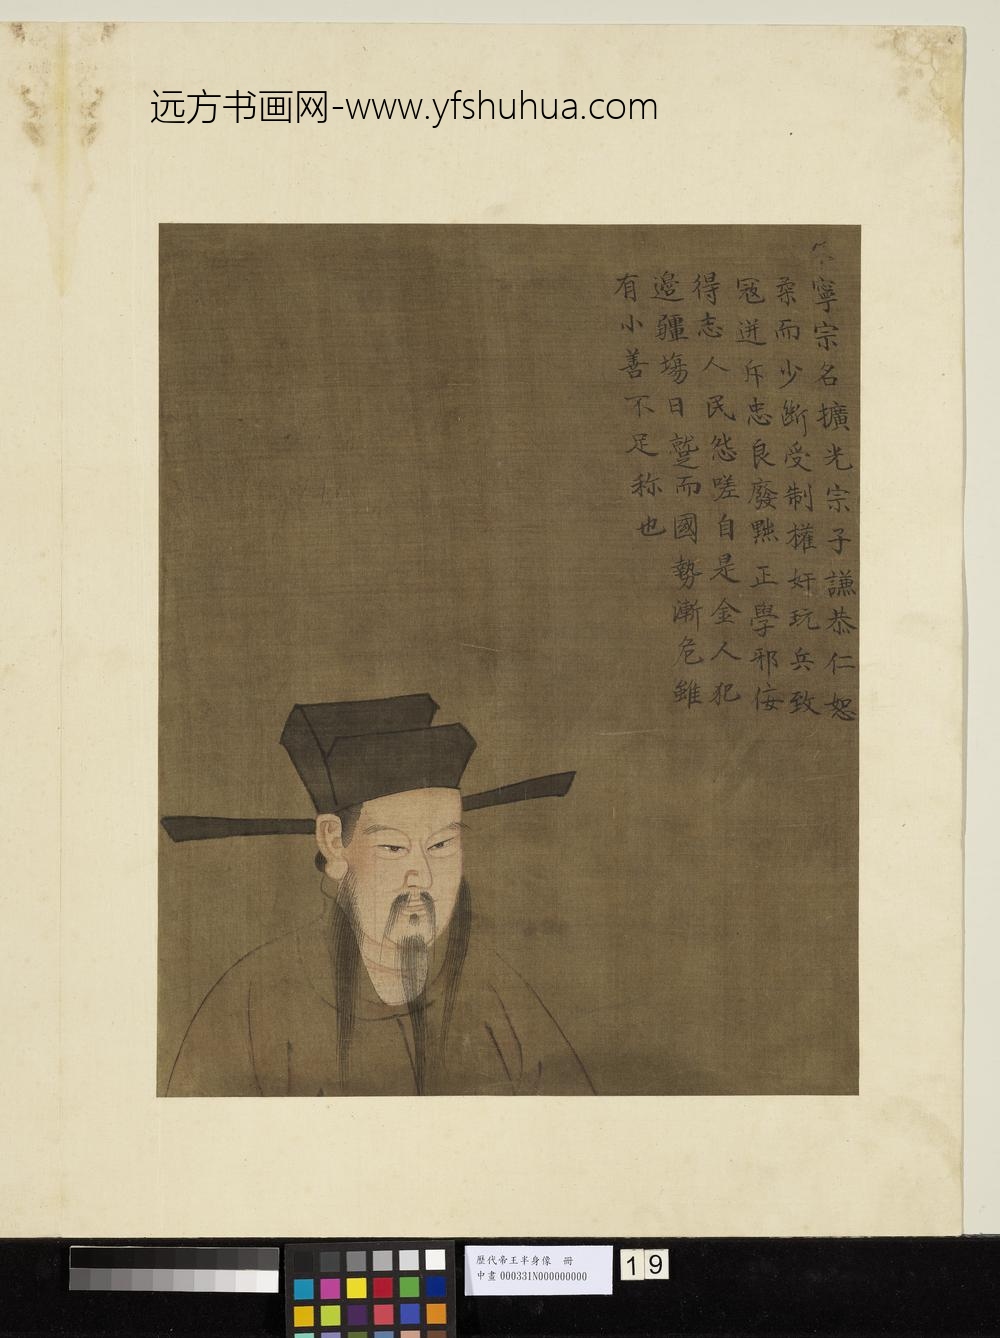 远方书画网-www.yfshuhua.com
寧宗名擴光宗子謙恭仁恕
柔而少斷受制權奸玩兵致
寇迸斥忠良廢黜正學邪佞
得志人民怨嗟自是金人犯
邊疆埸日蹙而國勢漸危雖
有小善不足称也
歷代帝王半身像 冊
中畫000331N000000000
19